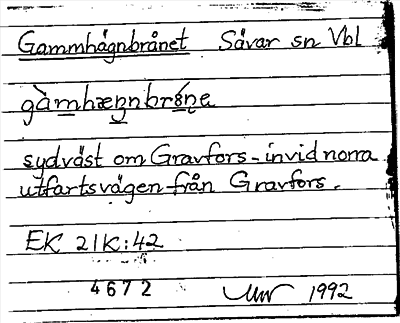 Gammhägnbrånet Sävar sn Vbl
gàmhæŋnbrǿṇe
sydväst om Gravfors - invid norra
utfartsvägen från Gravfors.
EK 21K:42
4672 1992